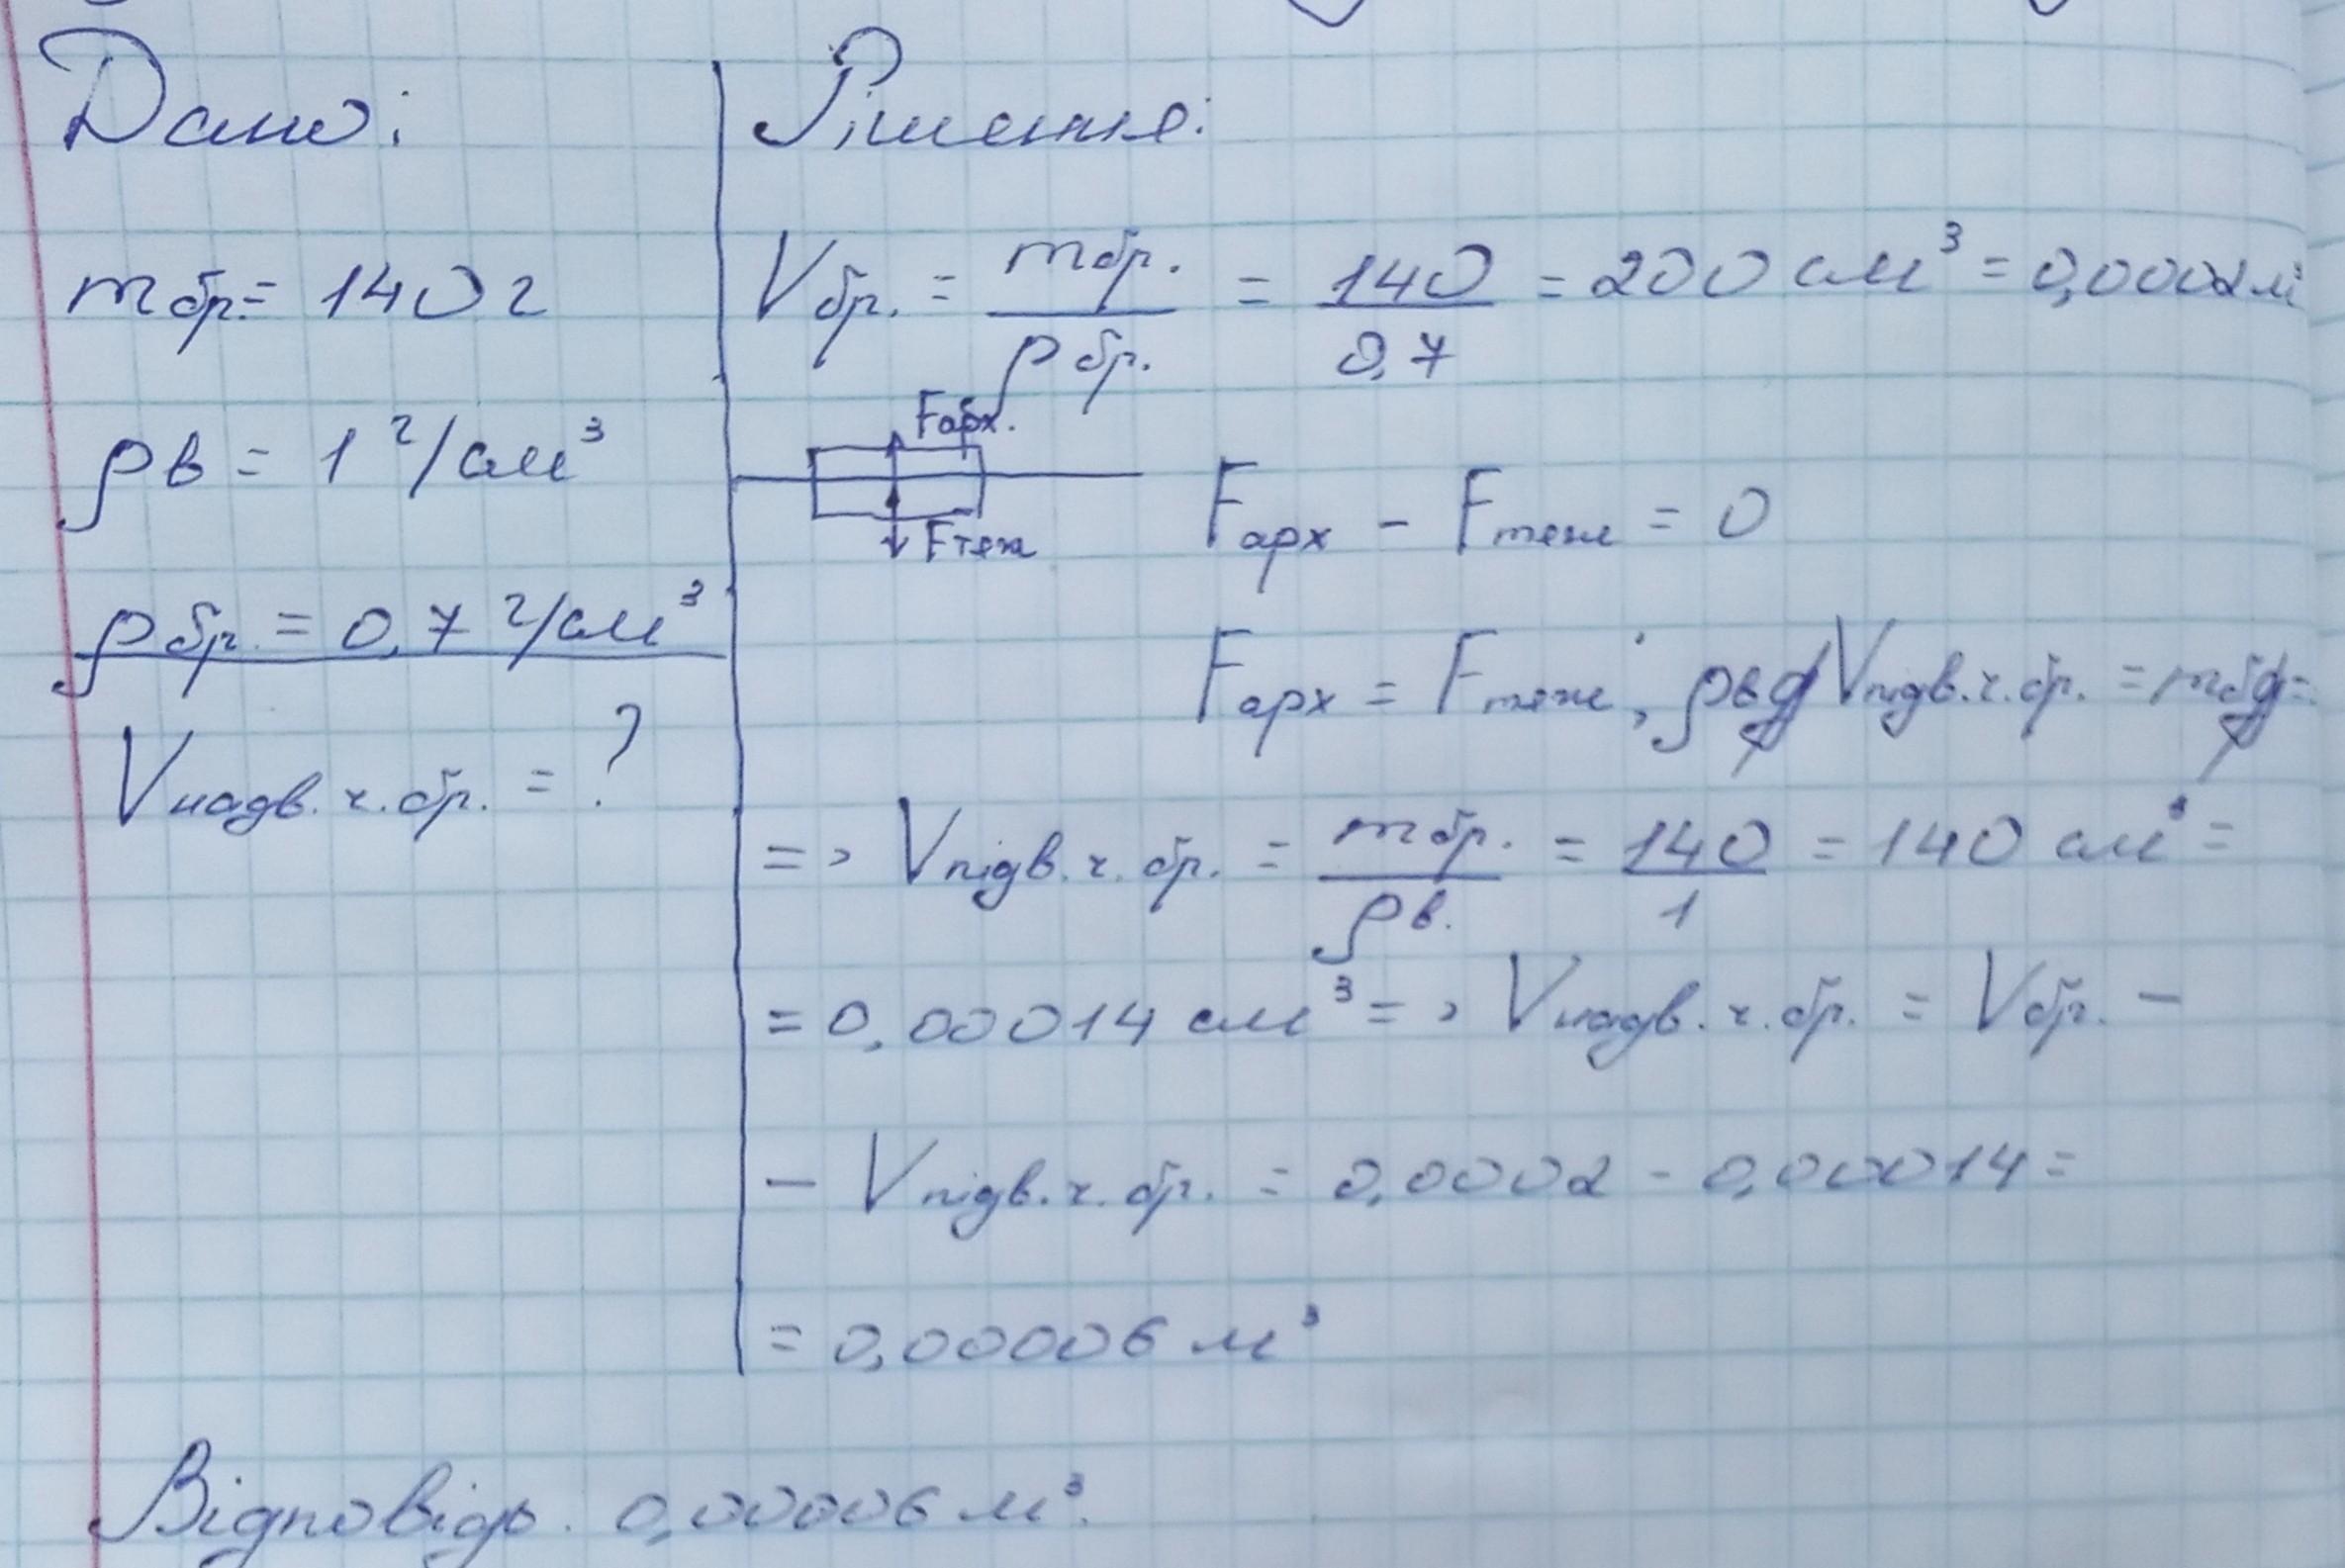 Дано:
mбр. = 140 г
ρв = 1 г/см³
ρбр. = 0,7 г/см³
Vнадв.ч.бр. = ?
Рішення:
Vбр. = mбр./ρбр. = 140/0,7 = 200 см³ = 0,0002 м³
Fарх.
Fтяж
Fарх - Fтяж = 0
Fарх = Fтяж; ρвgVпідв.ч.бр. = mбg =
=> Vпідв.ч.бр. = mбр./ρв. = 140/1 = 140 см³ =
= 0,00014 см³ => Vнадв.ч.бр. = Vбр. –
– Vпідв.ч.бр. = 0,0002 - 0,00014 =
= 0,00006 м³
Відповідь. 0,00006 м³.